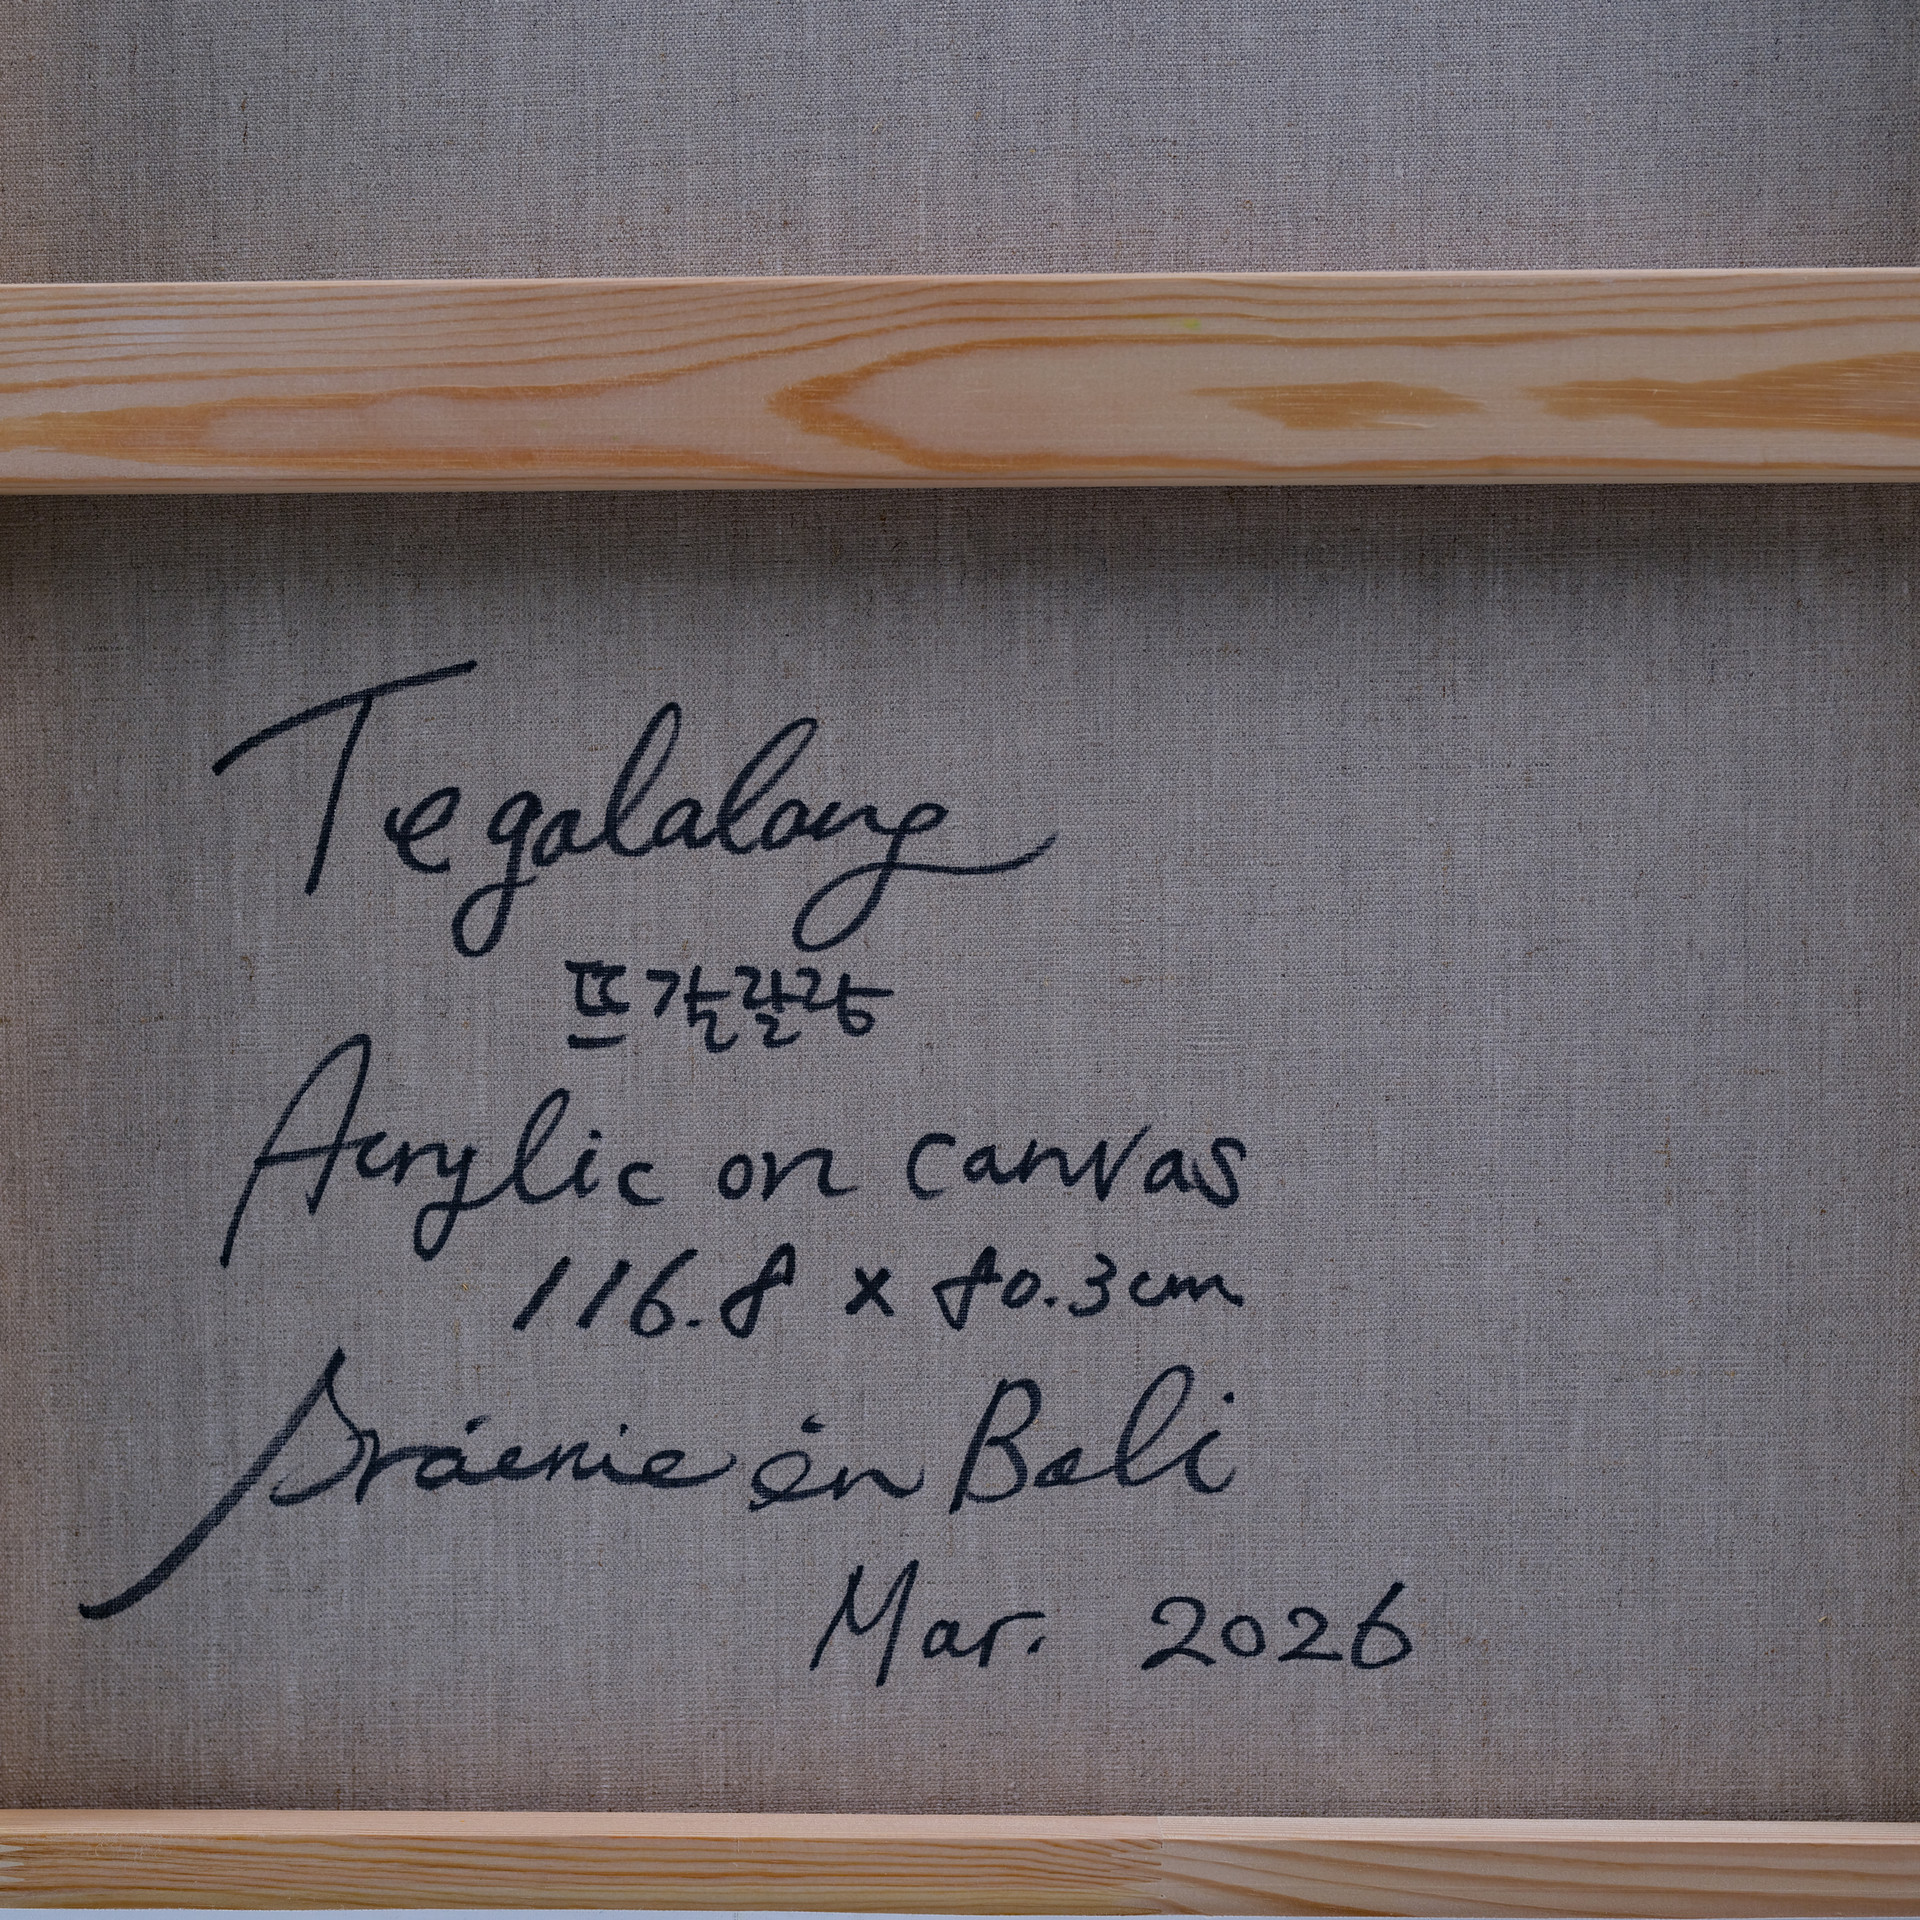 Tegalalang
뜨갈랄랑
Acrylic on canvas
116.8 x 80.3cm
in Bali
Mar. 2026